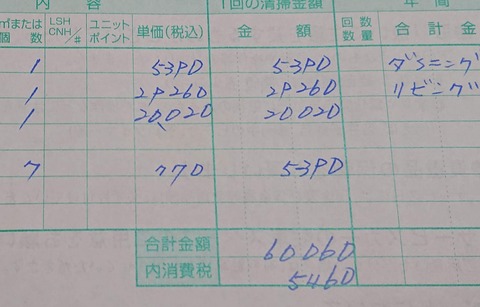 内 容 1回の清掃金額 年 間
㎡または個 数 LSH CNH/# ユニットポイント 単価(税込) 金 額 回数 数量 合 計 金
1 5390 5390 ダイニング
1 29260 29260 リビング
1 20,020 20020
7 770 5390
合計金額 60060
内消費税 5460